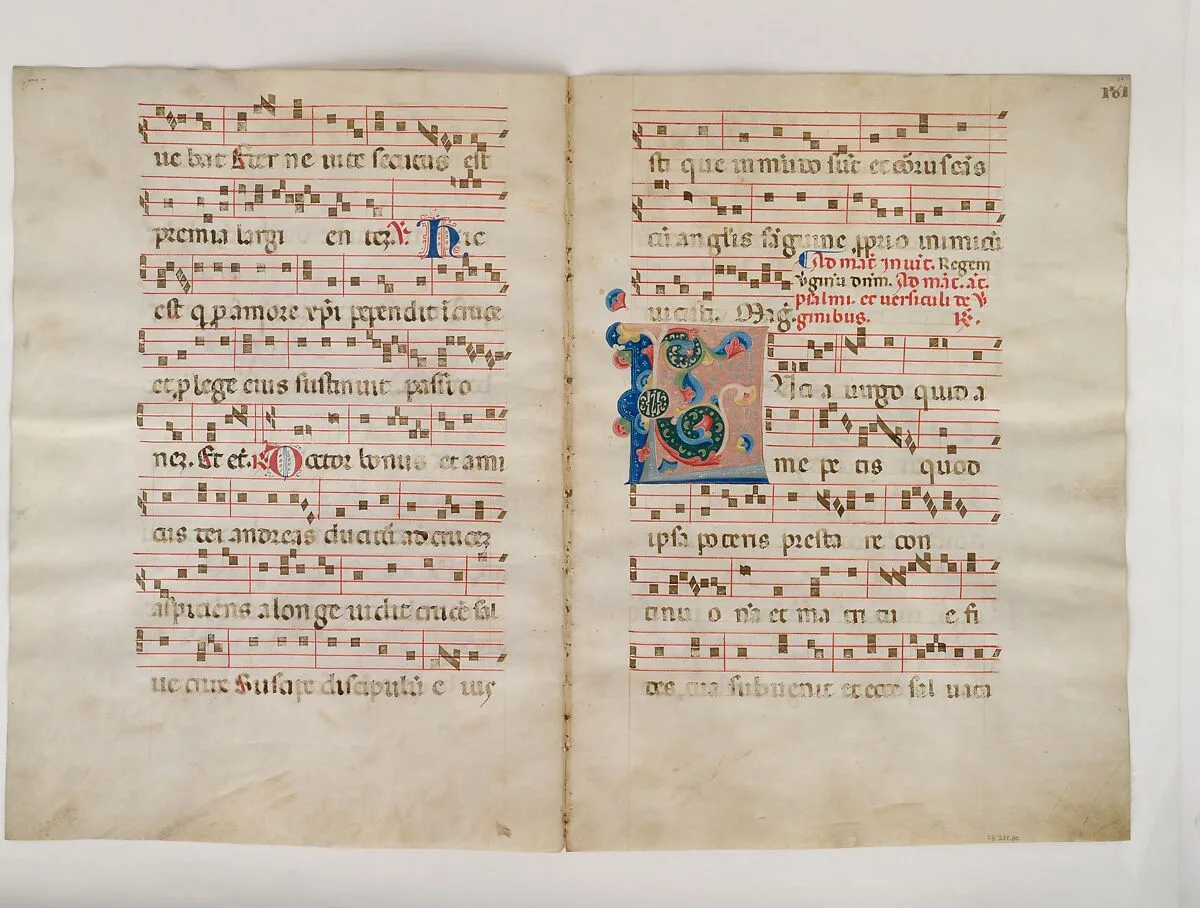 ue bat Eter ne uite secutus est
premia largi en tez. ℣ Hic
est q p amore xpi pependit i cruce
et p lege eius sustinuit passio
nez. Et et. ℟ Doctor bonus et ami
cus dei andreas ducitur ad crucez
aspiciens a lon ge uidit crucē sal
ue crux Suscipe discipulū e ius
181
sti que in mūdo sūt et coruscās
cū anglis sāguine prio inimicū
Ad mat̄ in uit. Regem
v̄ginū dnm. Ad mat̄. āt.
psalmi. et versiculi de v̄
uicisti. Mag̅. ginibus. ℟.
a uirgo quid a
me pe tis quod
ipsa poteris presta re con
tinu o nā et ma tri tu e fi
des tua subuenit et ecce sal uata